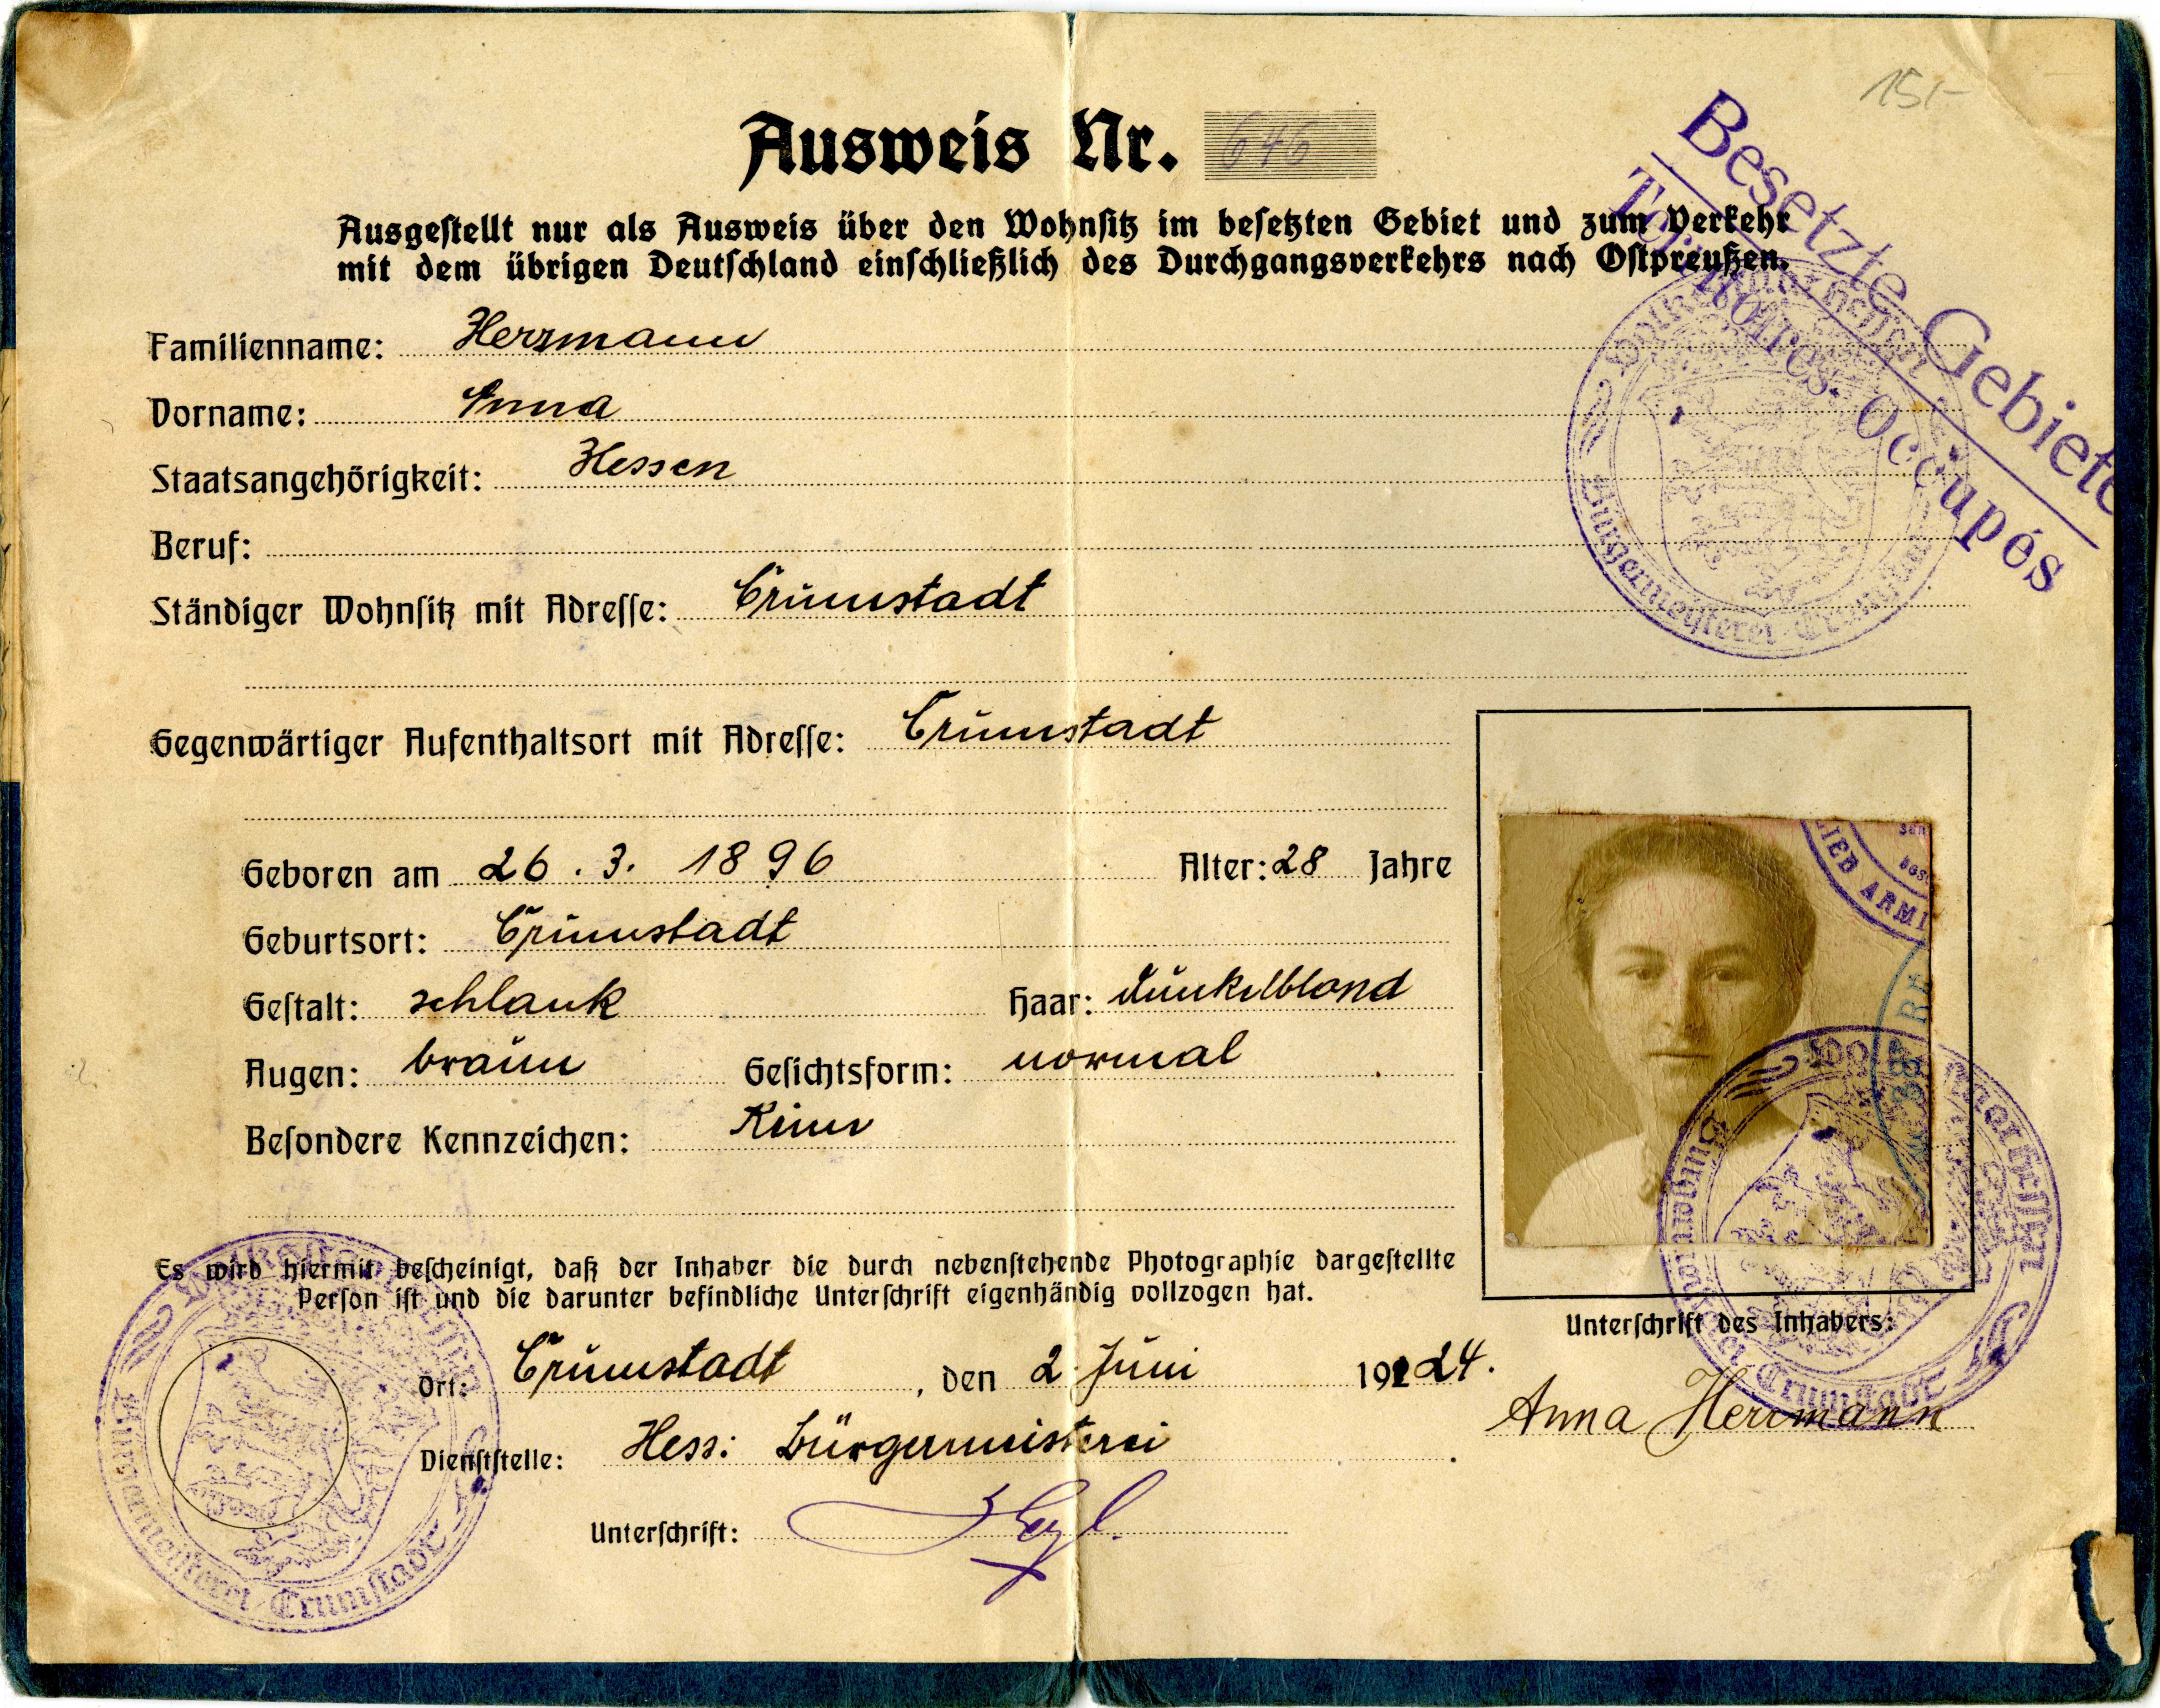 15,-
Ausweis Nr. 646
Besetzte Gebiete
Territoires Occupés
Ausgestellt nur als Ausweis über den Wohnsitz im besetzten Gebiet und zum Verkehr
mit dem übrigen Deutschland einschließlich des Durchgangsverkehrs nach Ostpreußen.
Familienname: Herrmann
Vorname: Anna
Staatsangehörigkeit: Hessen
Beruf:
Ständiger Wohnsitz mit Adresse: Crumstadt
Bürgermeisterei Crumstadt
Gegenwärtiger Aufenthaltsort mit Adresse: Crumstadt
Geboren am 26. 3. 1896 Alter: 28 Jahre
Geburtsort: Crumstadt
Gestalt: schlank Haar: dunkelblond
Augen: braun Gesichtsform: normal
Besondere Kennzeichen: Keine
Es wird hiermit bescheinigt, daß der Inhaber die durch nebenstehende Photographie dargestellte
Person ist und die darunter befindliche Unterschrift eigenhändig vollzogen hat.
Ort: Crumstadt, den 2. Juni 1924.
Dienststelle: Hess: Bürgermeisterei
Unterschrift:
Bürgermeisterei Crumstadt
Unterschrift des Inhabers:
Anna Herrmann
Crumstadt